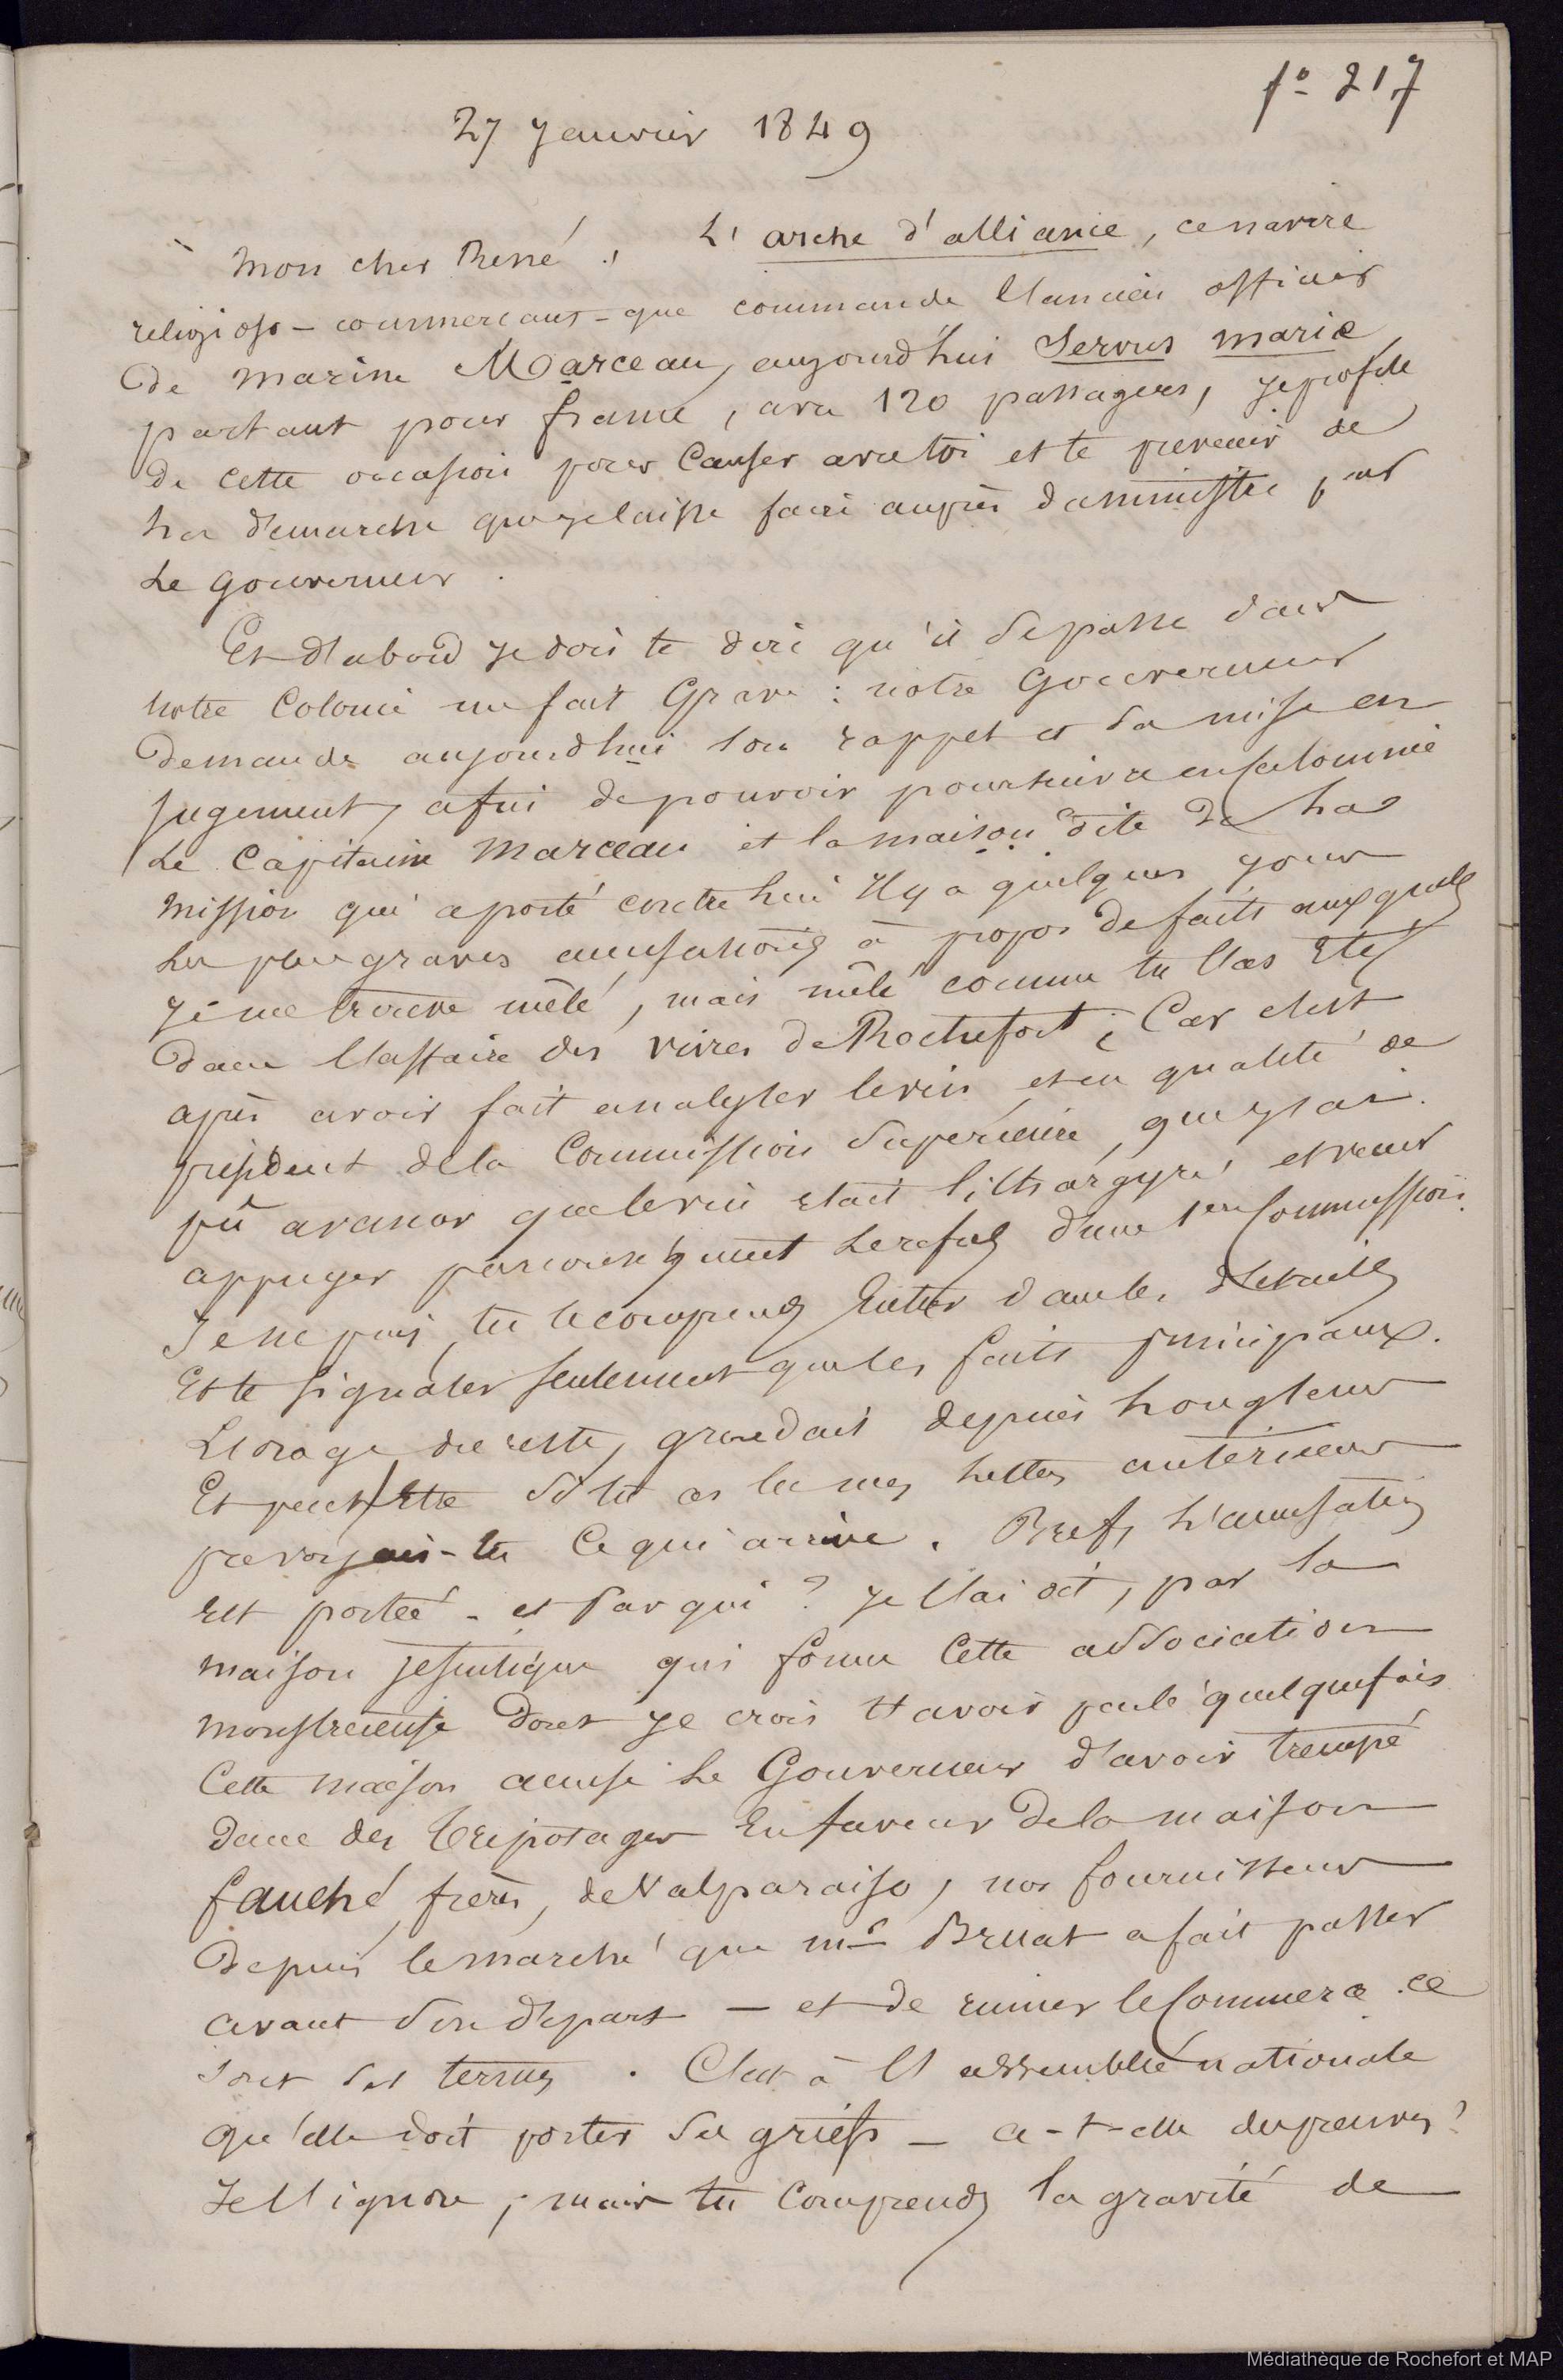 fo 217
27 Janvier 1849
Mon cher René, L'arche d'alliance, ce navire
religioso-commercant-que commande l'ancien officier
de marine Marceau, aujourd'hui Servus mariæ
partant pour france, avec 120 passagers, je profite
de cette occasion pour causer avec toi et te prevenir de
la démarche que je laisse faire auprès du ministre par
le gouverneur.
Et d'abord je dois te dire qu'il se passe dans
notre Colonie un fait Grave : notre Gouverneur
demande aujourd'hui son rappel et sa mise en
jugement, afin de pouvoir poursuivre en calomnie
le Capitaine Marceau et la maison dite de la
mission qui a porté contre lui Il y a quelques jours
les plus graves accusations à propos de faits auxquels
je me trouve mêlé, mais mêlé comme tu l'as Eté
dans l'affaire des vivres de Rochefort ; Car c'est
après avoir fait analyser le vin et en qualité de
président de la Commission Supérieure, que j'ai
pû avancer que le vin etait lithargyré et venir
appuyer par conséquent le refus d'une 1ere Commission.
Je ne puis, tu le comprends Entrer dans les détails
Et te signaler seulement que les faits principaux.
L'orage du reste, grondait depuis longtems
Et peut Etre si tu as lu mes lettres antérieures
prevoyais-tu ce qui arrive. Bref, l'accusation
est portée - et par qui ? je l'ai dit, par la
maison jésuitique qui forme Cette association
monstrueuse dont je crois t'avoir parlé quelquefois
Cette maison accuse le Gouverneur d'avoir trempé
dans des tripotages En faveur de la maison
fauché frères, de Valparaiso, nos fournisseurs
depuis le marché que mr Bruat a fait passer
avant son départ — et de ruiner le Commerce. ce
sont ses termes. C'est à l'assemblée nationale
qu'elle doit porter ses griefs — a-t-elle des preuves ?
Je l'ignore ; mais tu comprends la gravité de
Médiathèque de Rochefort et MAP